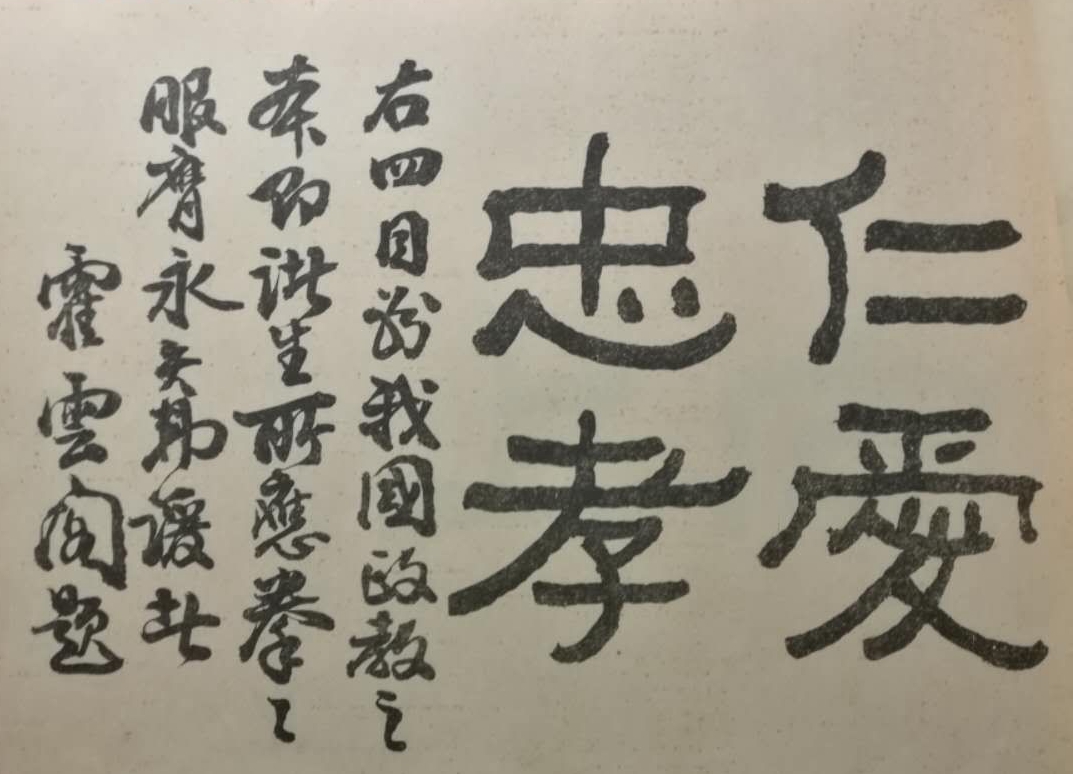 仁愛
忠孝
右四目為我國政教之
本即諸生所應拳〻
服膺永矢弗諼者
霍雲閣題